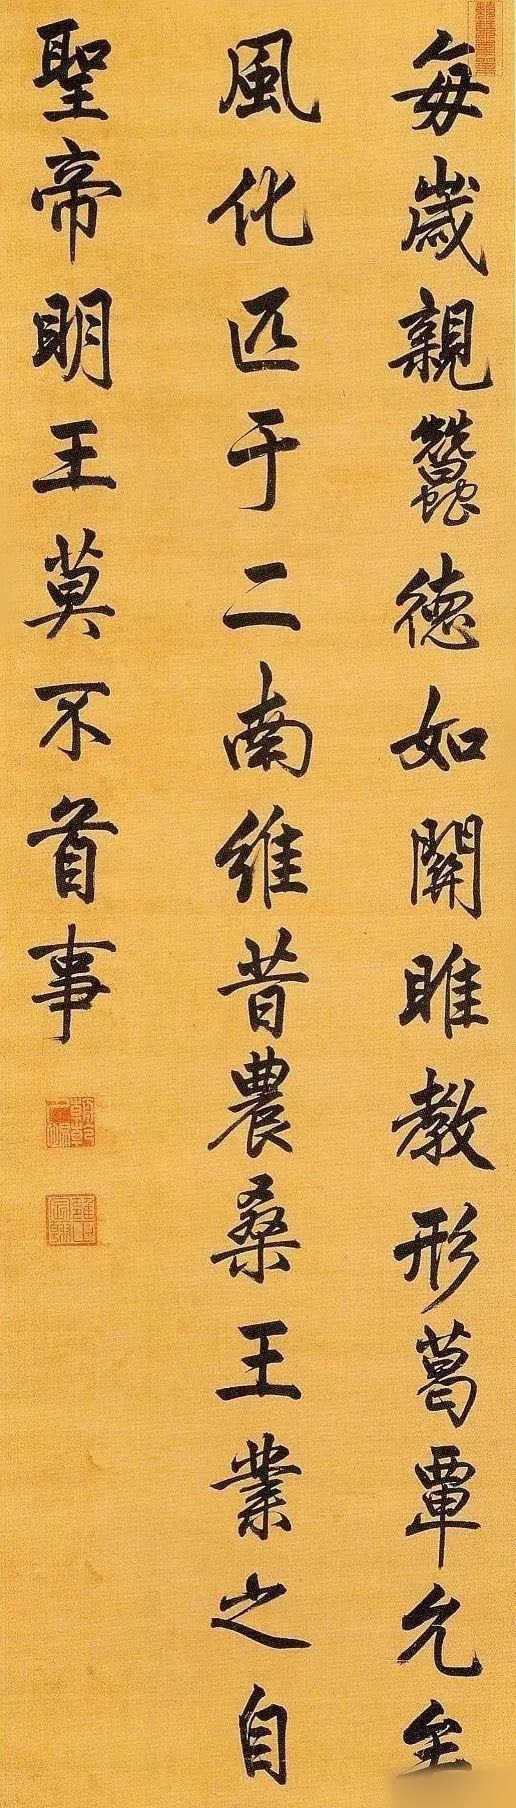 每歲親蠶德如關雎教形葛覃允
風化匹于二南維昔農桑王業之自
聖帝明王莫不首事